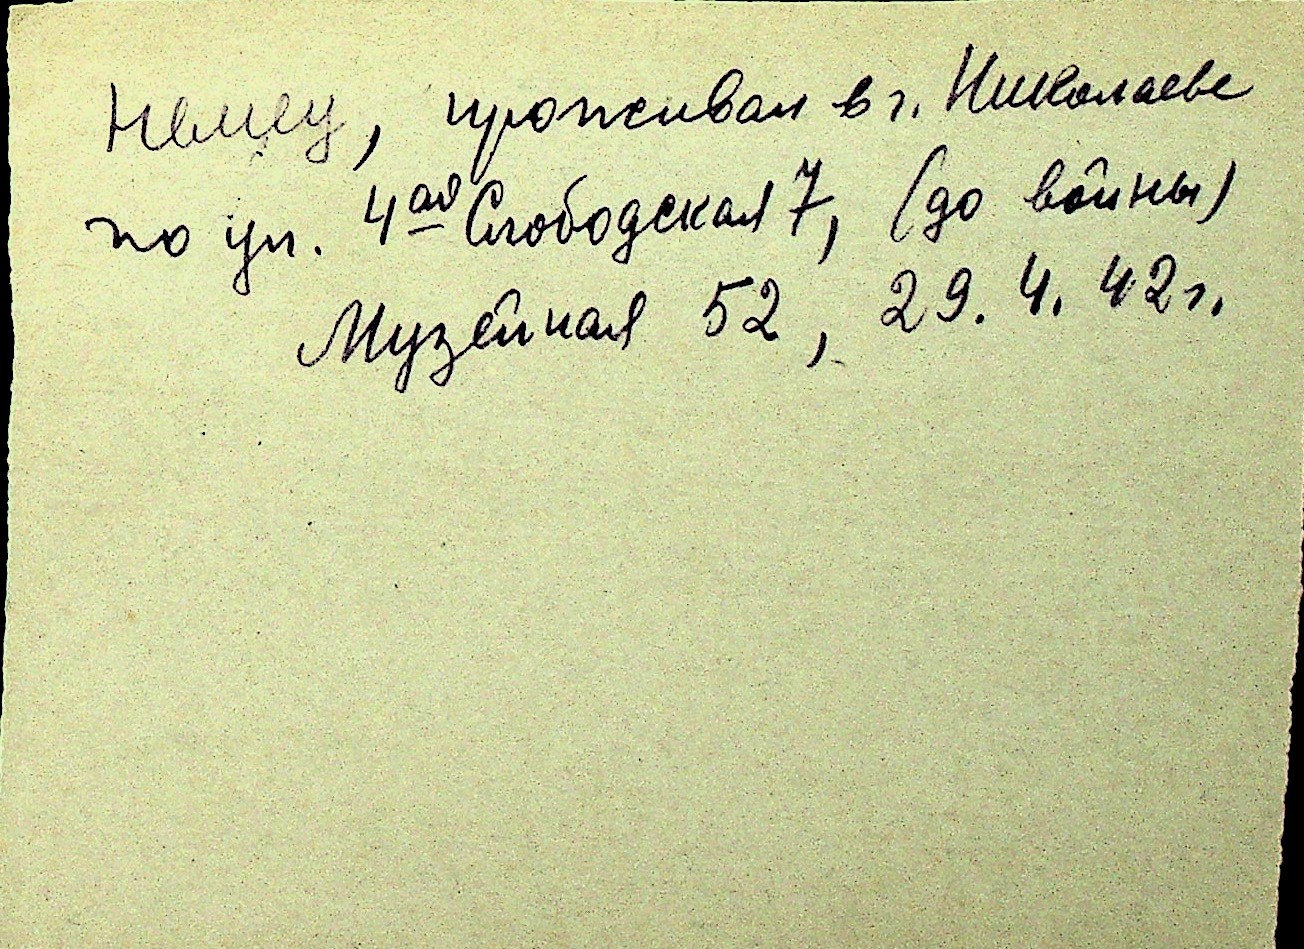 Немец, проживал в г. Николаеве
по ул. 4ая Слободская 7, (до войны)
Музейная 52, 29.4.42г.